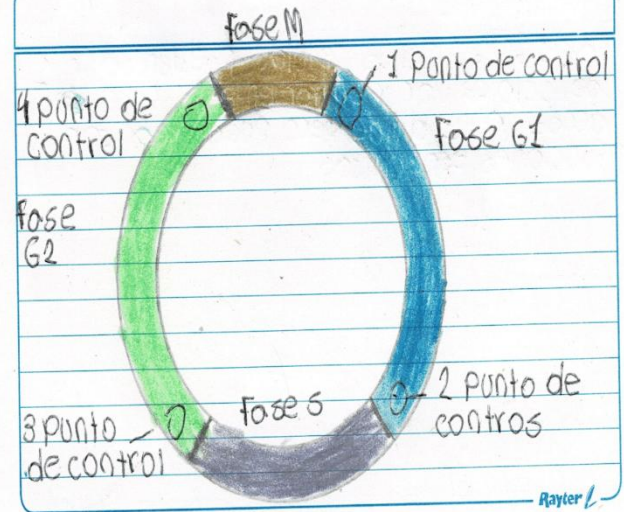 Fase M
1 Punto de control
4 punto de
control
Fase G1
Fase
G2
Fase s
2 punto de
contros
3 punto
de control
Rayter